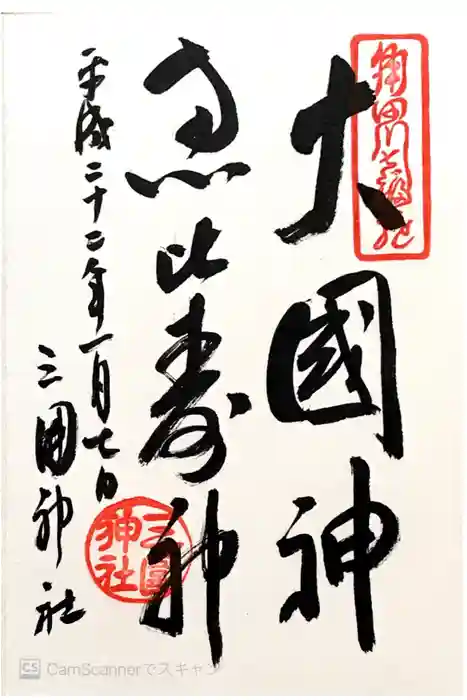 隅田川七福神
大國神
恵比寿神
平成二十二年一月七日
三囲神社
三圍神社
CS CamScannerでスキャン